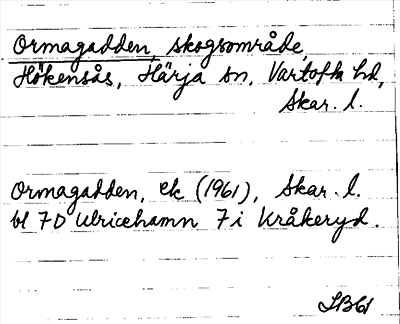 Ormagadden, skogsområde,
Hökensås, Härja sn, Vartofta hd,
Skar. l.
Ormagadden, ek (1961), Skar. l.
bl 7D Ulricehamn 7 i Kråkeryd.